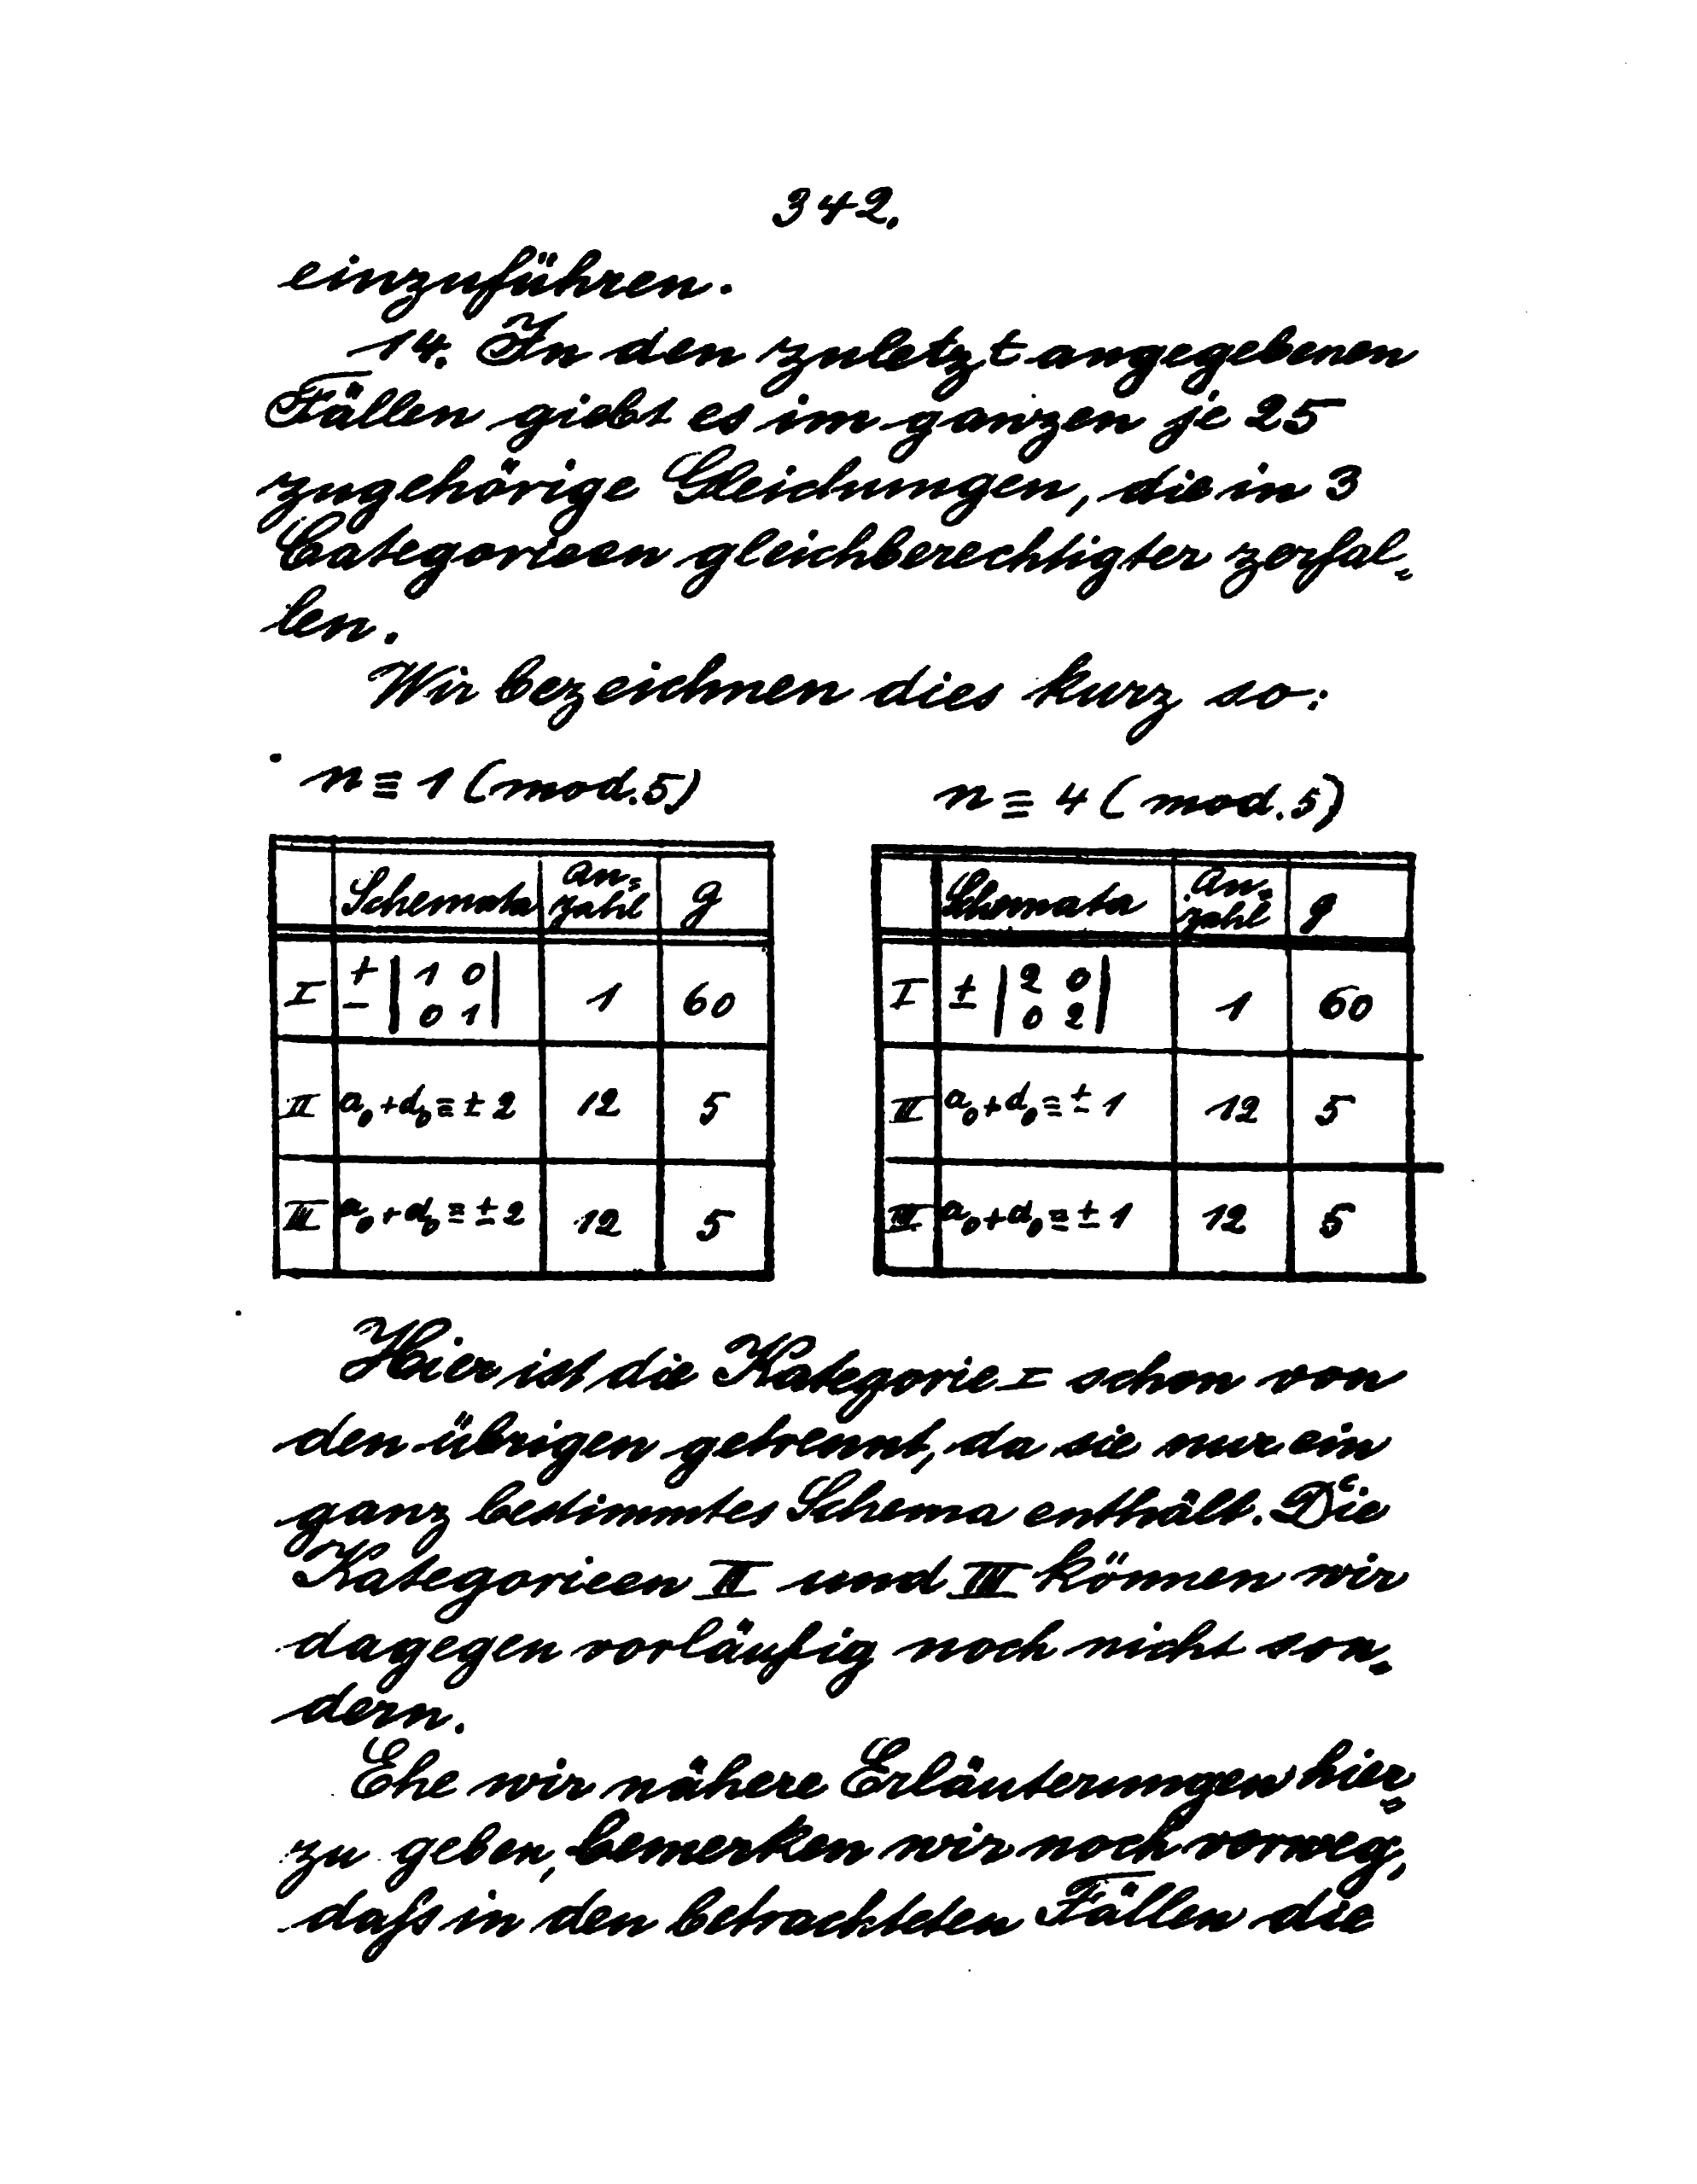 342.
einzuführen.
14. In den zuletzt angegebenen
Fällen giebt es im ganzen je 25
zugehörige Gleichungen, die in 3
Categorieen gleichberechtigter zerfal-
len.
Wir bezeichnen dies kurz so:
n ≡ 1 (mod. 5)
Schemata An-zahl g
I ± | 1 0 0 1 | 1 60
II a₀+d₀ ≡ ± 2 12 5
III a₀+d₀ ≡ ± 2 12 5
n ≡ 4 (mod. 5)
Schemata An-zahl g
I ± | 2 0 0 2 | 1 60
II a₀+d₀ ≡ ± 1 12 5
III a₀+d₀ ≡ ± 1 12 5
Hier ist die Kategorie I schon von
den übrigen getrennt, da sie nur ein
ganz bestimmtes Schema enthält. Die
Kategorieen II und III können wir
dagegen vorläufig noch nicht son-
dern.
Ehe wir nähere Erläuterungen hier-
zu geben, bemerken wir noch vorweg,
daſs in den betrachteten Fällen die